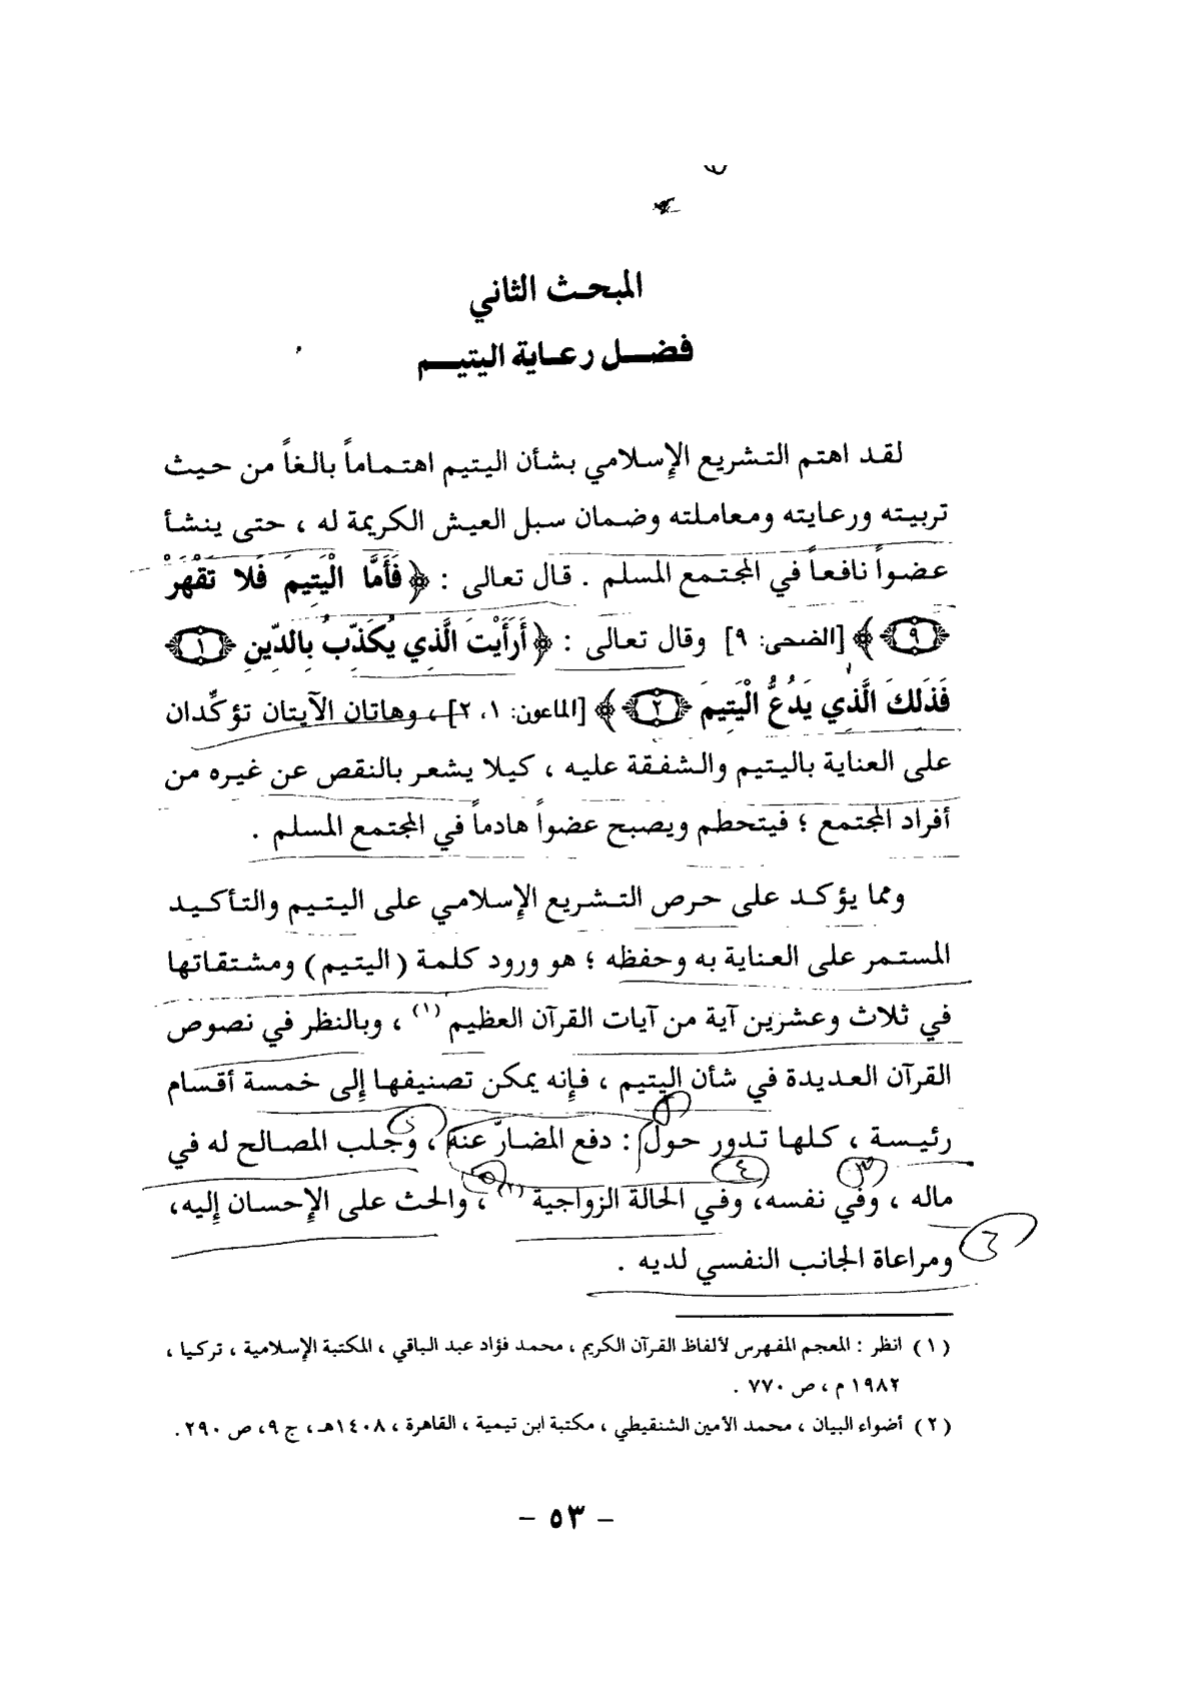 المبحث الثاني
فضل رعاية اليتيم
لقد اهتم التشريع الإسلامي بشأن اليتيم اهتماماً بالغاً من حيث
تربيته ورعايته ومعاملته وضمان سبل العيش الكريمة له ، حتى ينشأ
عضواً نافعاً في المجتمع المسلم . قال تعالى : ﴿ فَأَمَّا الْيَتِيمَ فَلا تَقْهَرْ
٩ ﴾ [الضحى: ٩] وقال تعالى : ﴿ أَرَأَيْتَ الَّذِي يُكَذِّبُ بِالدِّينِ ١
فَذَلِكَ الَّذِي يَدُعُّ الْيَتِيمَ ٢ ﴾ [الماعون: ١، ٢] ، وهاتان الآيتان تؤكِّدان
على العناية باليتيم والشفقة عليه ، كيلا يشعر بالنقص عن غيره من
أفراد المجتمع ؛ فيتحطم ويصبح عضواً هادماً في المجتمع المسلم .
ومما يؤكد على حرص التشريع الإسلامي على اليتيم والتأكيد
المستمر على العناية به وحفظه ؛ هو ورود كلمة (اليتيم) ومشتقاتها
في ثلاث وعشرين آية من آيات القرآن العظيم (١) ، وبالنظر في نصوص
القرآن العديدة في شأن اليتيم ، فإنه يمكن تصنيفها إلى خمسة أقسام
رئيسة ، كلها تدور حول : دفع المضارّ عنه ، وجلب المصالح له في
ماله ، وفي نفسه، وفي الحالة الزواجية (٢) ، والحث على الإحسان إليه،
ومراعاة الجانب النفسي لديه .
(١) انظر : المعجم المفهرس لألفاظ القرآن الكريم ، محمد فؤاد عبد الباقي ، المكتبة الإسلامية ، تركيا ،
١٩٨٢ م ، ص ٧٧٠ .
(٢) أضواء البيان ، محمد الأمين الشنقيطي ، مكتبة ابن تيمية ، القاهرة ، ١٤٠٨هـ ، ج ٩، ص ٢٩٠ .
- ٥٣ -